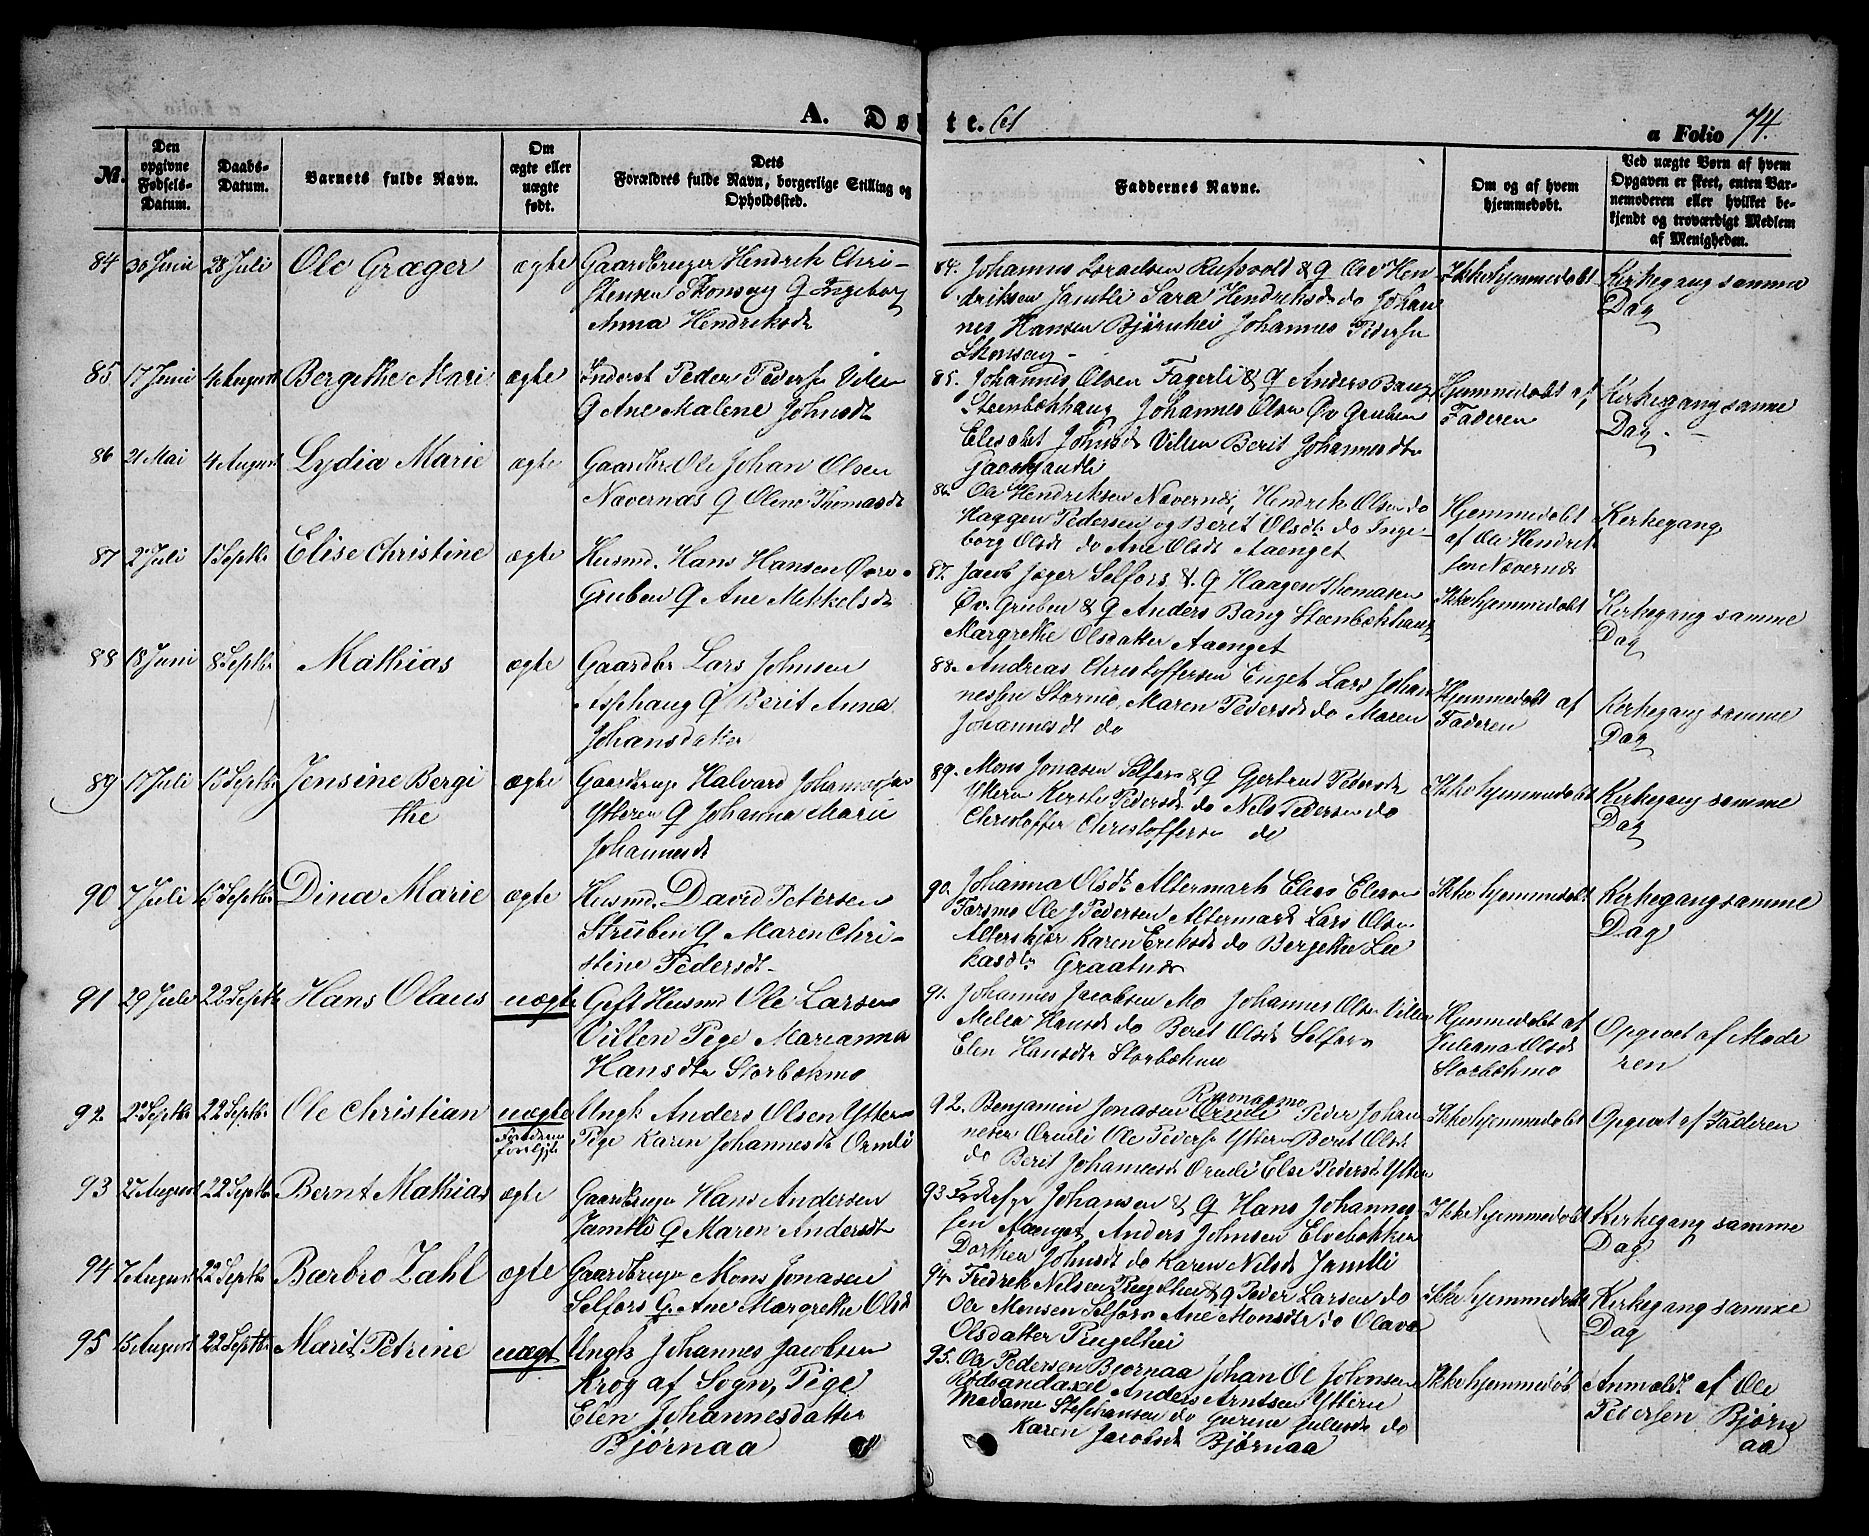 A. Døbte. 61
a Folio 74.
No.
Den opgivne Fødsels-Datum.
Daabs-Datum.
Barnets fulde Navn.
Om ægte eller uægte født.
Dets Forældres fulde Navn, borgerlige Stilling og Opholdssted.
Faddernes Navne.
Om og af hvem hjemmedøbt.
Ved uægte Børn af hvem Opgaven er skeet, enten Barnemoderen eller hvilket bekjendt og troværdigt Medlem af Menigheden.
84 30 Juni 28 Juli Ole Græger ægte Gaardbruger Hendrik Chri-
stensen Stensøy Q Ingeborg
Anna Hendriksdt
84. Johannes Israelsen Russvold & Q Ole Hen-
driksen Jamtli Sara Hendriksdt do Johan
nes Hansen Bjørnhei Johannes Pedersen
Ikke hjemmedøbt
Kirkegang samme
Dag
85 17 Juni 4 August Bergithe Mari ægte Inderst Peder Peders Vilen
Q Ane Malene Johnsdt
85. Johannes Olsen Fagerli & Q Anders Bang
Steenbækhaug Johannes Olsen Øv Gruben
Elisabet Johnsdt Villen Berit Johannesdtr
Hjemmedøbt af
Faderen
Kirkegang samme
Dag.
86 21 Mai 4 August Lydia Marie ægte Gaardbr Ole Johan Olsen
Nævernæs Q Oline Thomasdt
86. Ole Hendriksen Nævernæs, Hendrik Olsen do
Haggen Pedersen og Berit Olsdt do Inge-
borg Olsdt do Ane Olsdt Aaenget
Hjemmedøbt
af Ole Hendrik
sen Nævernæs
Kirkegang
87 2 Juli 1 Septbr Elise Christine ægte Husmd. Hans Hansen Øvre
Gruben Q Ane Mikkelsdt
87. Jacob Jæger Selfors & Q Haagen Thomasen
Øv. Gruben & Q Anders Bang Steenbækhaug
Margrethe Olsdatter Aaenget
Ikke hjemmedøbt
Kirkegang samme
Dag
88 18 Juni 8 Septbr Mathias ægte Gaardbr Lars Johnsen
Asphaug Q Berit Anna
Johansdatter
88. Andreas Christoffersen Enget Lars Johan
nessen Stormo, Maren Pedersdt do Maren
Johannesdt do
Hjemmedøbt af
Faderen
Kirkegang samme
Dag
89 17 Juli 15 Septbr Jensine Bergi
the ægte Gaardbruger Halvard Johannesen
Ytteren Q Johanna Marie
Johannesdt
89. Mons Jonasen Selfors & Q Gjertrud Pedersdt
Ytteren Kirsti Pedersdt do Nils Pedersen do
Christoffer Christoffersen do
Ikke hjemmedøbt
Kirkegang samme
Dag
90 7 Juli 15 Septbr Dina Marie ægte Husmd. David Petersen
Struben Q Maren Chri-
stine Pedersdt
90. Johanna Olsdt Altermark Elias Eliasen
Forsmo Ole J Pedersen Altermark Lars Olsen
Alterskjær Karen Eriksdt do Bergithe Lu
kasdtr Graatnæs
Ikke hjemmedøbt
Kirkegang samme
Dag
91 29 Juli 22 Septbr Hans Olaus uægte Gift Husmd Ole Larsen
Villen Pige Marianna
Hansdtr Storbækmo
91. Johannes Jacobsen Mo Johannes Olsen Villen
Melea Hansdt do Berit Olsdt Selfors
Elen Hansdtr Storbækmo
Hjemmedøbt af
Juliana Olsdt
Storbækmo
Opgivet af Mode
ren
92. 2 Septbr 22 Septbr Ole Christian uægte Ungk Anders Olsen Ytteren
Forældrene
forligt
Pige Karen Johannesdt Ørmli
92. Benjamin Jonasen Ørmli Peder Johan
nesen Ørmli Ole Peders Ytteren Berit Olsdt
do Berit Johannesdt Ørmli Else Pedersdt Ytteren
Ikke hjemmedøbt
Opgivet af Faderen
93 27 August 22 Septbr Bernt Mathias ægte Gaardbruger Hans Andersen
Jamtli Q Maren Andersdt
93. Johansen & Q Hans Johannes
sen Aaenget Anders Johnsen Elvebakken
Dorthea Johnsdt do Karen Nilsdt Jamtli
Ikke hjemmedøbt
Kirkegang samme
Dag
94 7 August 22 Septbr Barbro Zahl ægte Gaardbruger Mons Jonasen
Selfors Q Ane Margrethe Olsdt
94. Fredrik Nilsen Tingelhei & Q Peder Larsen do
Ole Monsen Selfors Ane Monsdtr do Olava
Olsdatter Tingelhei
Ikke hjemmedøbt
Kirkegang samme
Dag
95 15 August 22 Septbr Marit Petrine uægt Ungk Johannes Jacobsen
Krog af Sogn, Pige
Elen Johannesdatter
Bjørnaa
95. Ole Pedersen Bjørnaa Johan Ole Johnsen
Rødsandaxel Anders Arntsen Ytteren
Madame Steffensen do
Karen Jacobsdt Bjørnaa
Ikke hjemmedøb
Anmeldt af Ole
Pedersen Bjørn
aa